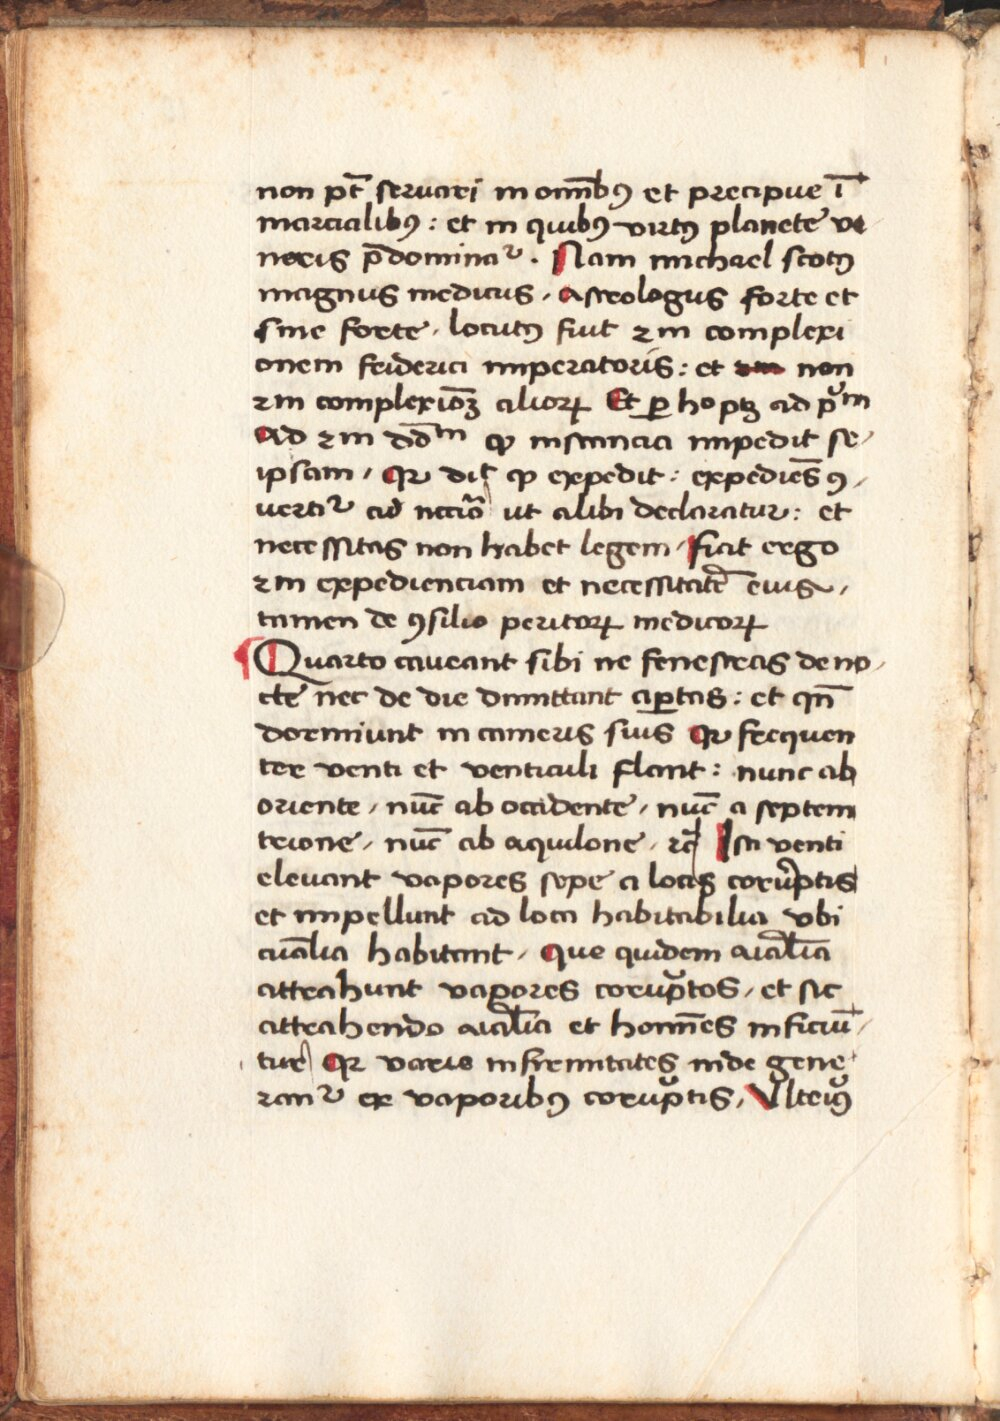 non pt̄ seruari in om̄ibꝰ et precipue ī
marcialibꝰ : et in quibꝰ virtꝰ planete ve
neris p̄dominaᷣ . Nam michael scotꝰ
magnus medicus , astrologus forte et
sine forte , locutꝰ fuit ẜm complexi
onem feiderici imperatoris : et non
ẜm complexiōꝫ alioꝝ Et ꝑ ho ptꝫ ad pᷣᵐ
Ad ẜm dd̄ᵐ ꝙ instancia impedit se
ipsam , Qꝛ dit̄ ꝙ expedit : expediēs ꝯ ,
uertiᷣ ad nccīo ut alibi declaratur : et
necessitas non habet legem , fiat ergo
ẜm expedienciam et necessitatē eius ,
tamen de ꝯsilio peritoꝝ medicoꝝ
Quarto caueant sibi ne fenestras de no ,
cte nec de die dimittant aꝑtas : et qn̄
dormiunt in cameris suis Qꝛ frequen
ter venti et venticuli flant : nunc ab
oriente , nūc ab occidente , nūc a septem
trione , nūc ab aquilone , ⁊c̄ Isti venti
eleuant vapores sepe a locis coruptis
et impellunt ad loca habitabilia vbi
aīalia habitant , Que quidem aīalia
attrahunt vapores coruptos , et sic
attrahendo aīalia et hom̄es inficiū ,
tur Qꝛ varie infirmitates inde gene
ranᷣ ex vaporibꝰ coruptis , Vlteriꝰ